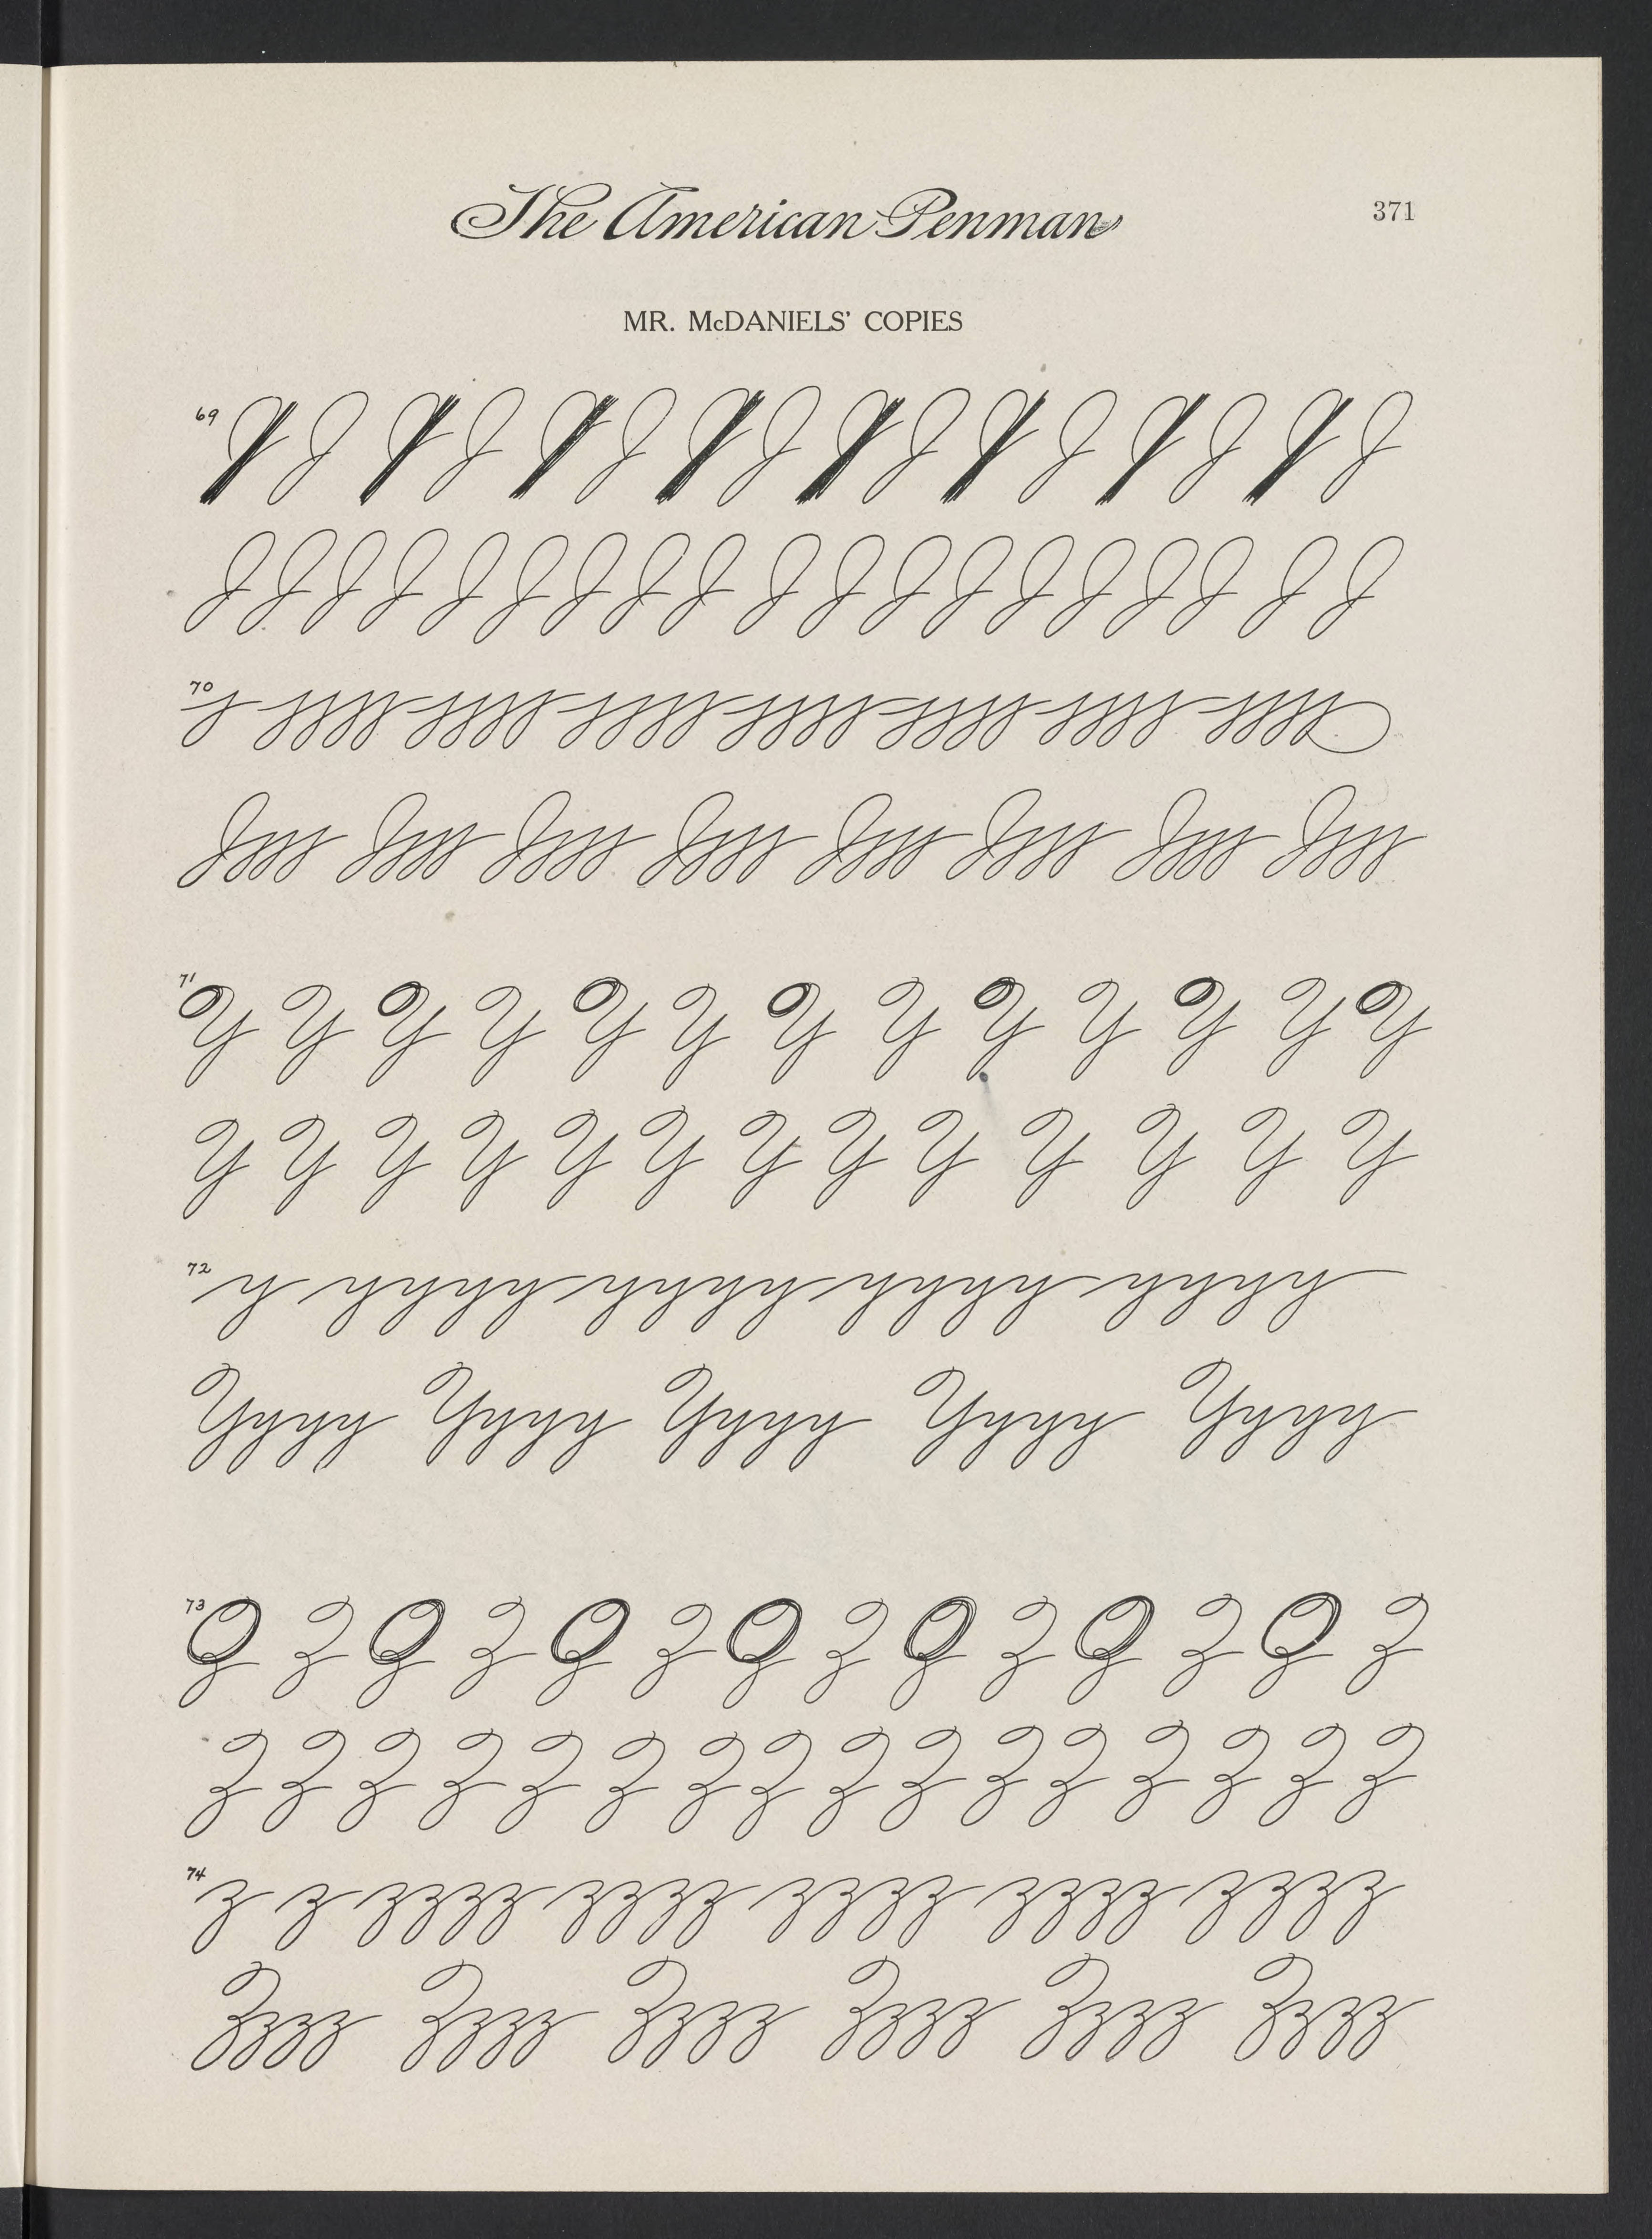 The American Penman 371
MR. McDANIELS' COPIES
69 J J J J J J J J J J J J J J J J
J J J J J J J J J J J J J J J J J J J
70 j jjjj jjjj jjjj jjjj jjjj jjjj jjjj
Jjjj Jjjj Jjjj Jjjj Jjjj Jjjj Jjjj Jjjj
71 Y Y Y Y Y Y Y Y Y Y Y Y Y
Y Y Y Y Y Y Y Y Y Y Y Y Y
72 y yyyy yyyy yyyy yyyy
Yyyy Yyyy Yyyy Yyyy Yyyy
73 Z Z Z Z Z Z Z Z Z Z Z Z Z Z
Z Z Z Z Z Z Z Z Z Z Z Z Z Z Z Z
74 z z zzzz zzzz zzzz zzzz zzzz
Zzzz Zzzz Zzzz Zzzz Zzzz Zzzz